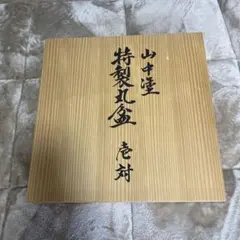 山中塗
特製丸盆
壱対